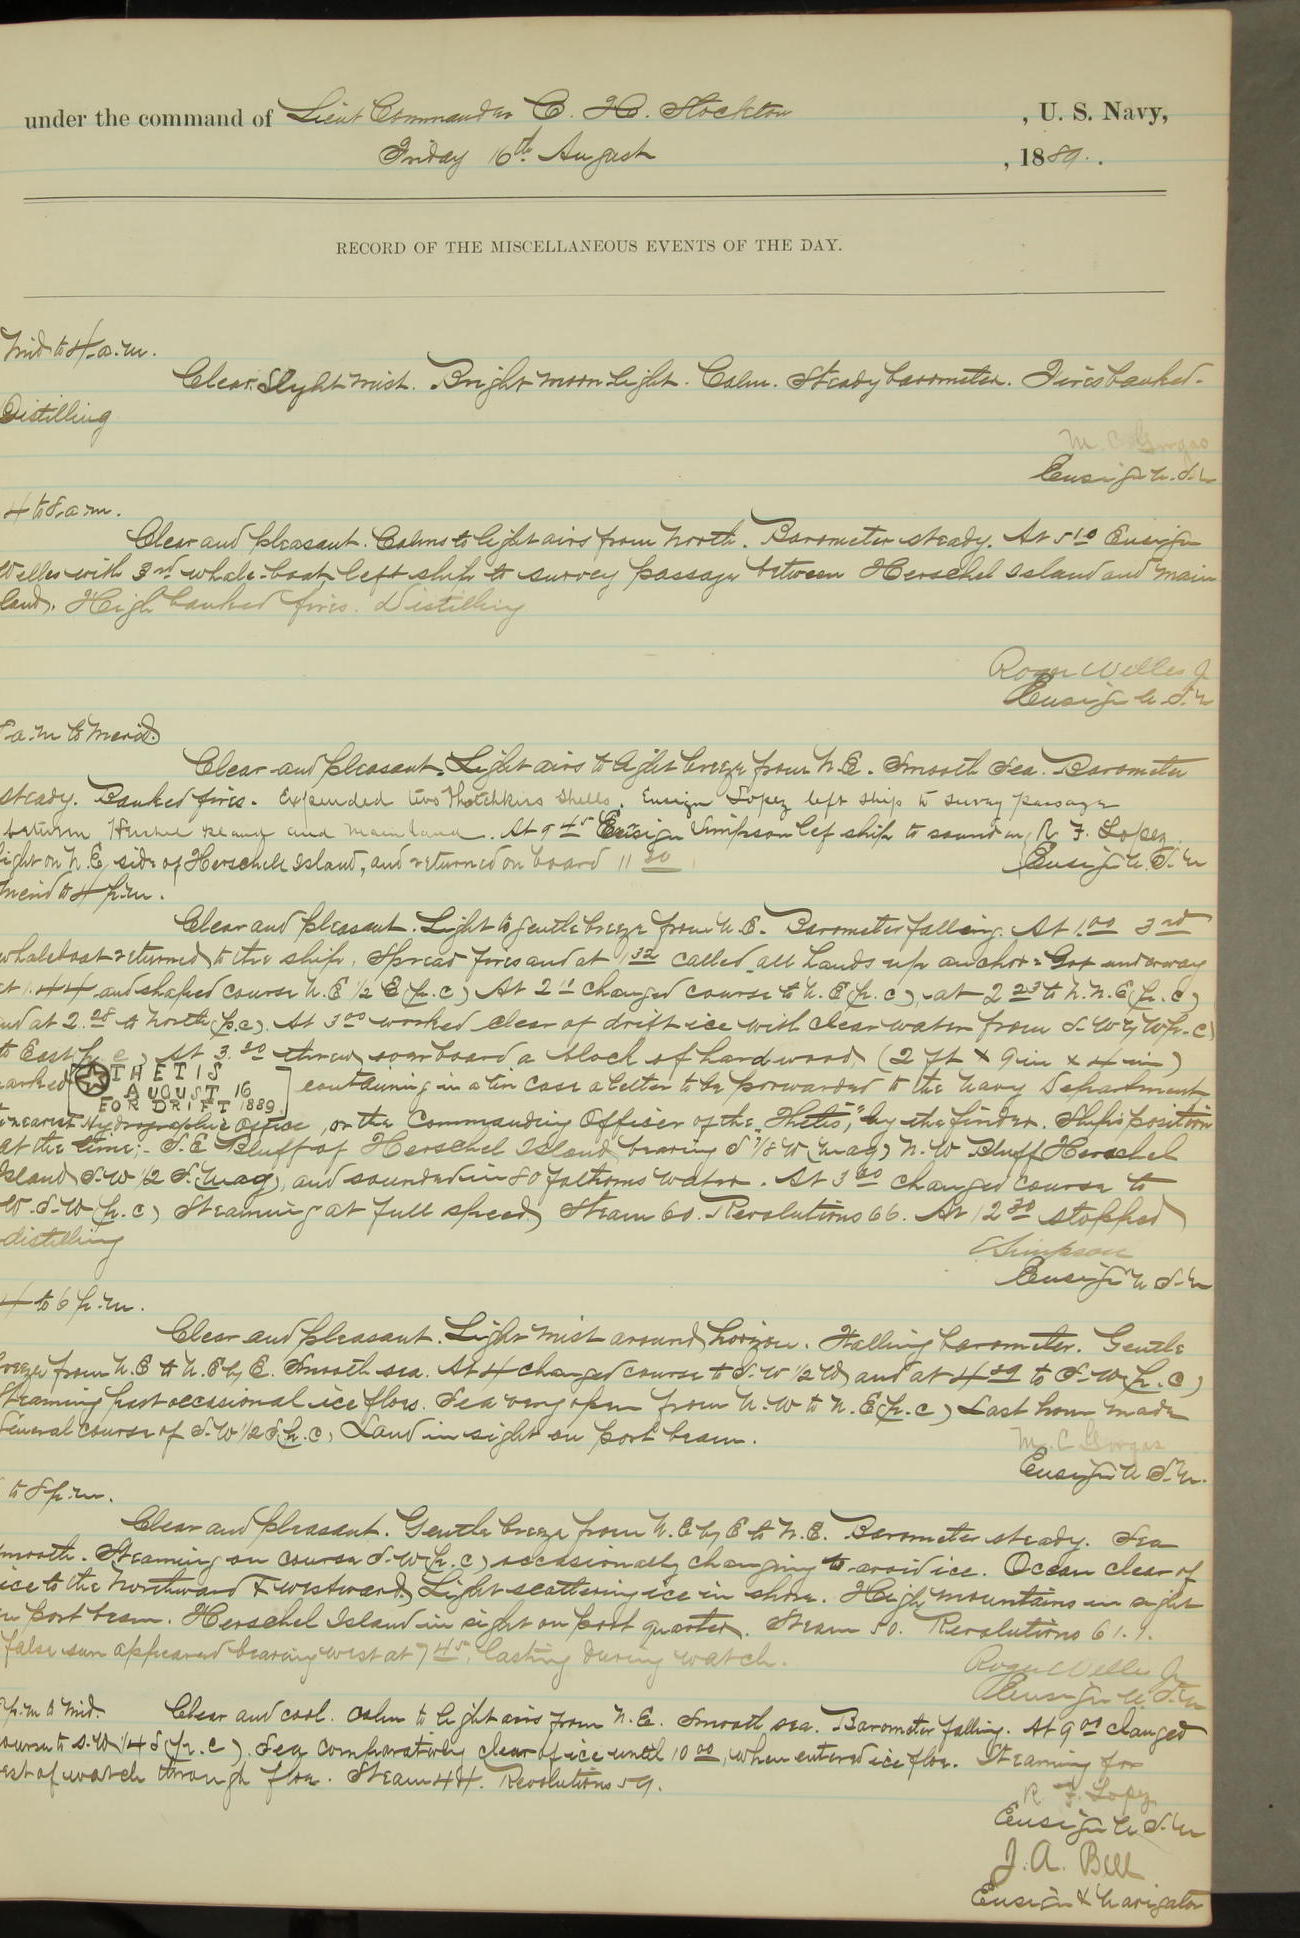 under the command of Lieut Commander C. H. Stockton , U. S. Navy,
Friday 16th. August , 1889.
RECORD OF THE MISCELLANEOUS EVENTS OF THE DAY.
Mid to 4 a.m.
Clear. Slight mist. Bright moon light. Calm. Steady barometer. Fires banked.
Distilling
M. C. Gorgas
Ensign U.S.N
4 to 8 a.m.
Clear and pleasant. Calms to light airs from North. Barometer steady. At 5 10 Ensign
Welles with 3rd whale-boat left ship to survey passage between Herschel Island and main
land. High banked fires. Distilling
Roger Welles Jr
Ensign U.S.N
8 a.m to Merid.
Clear and pleasant. Light airs to light breeze from N.E. Smooth Sea. Barometer
steady. Banked fires. Expended two Hotchkiss shells. Ensign Lopez left ship to survey passage
between Herschel Island and Mainland. At 9 45 Ensign Simpson lef ship to sound in R. F. Lopez
bight on N.E. side of Herschell Island, and returned on board 11 30 Ensign U.S.N
Merid to 4 p.m.
Clear and pleasant. Light to gentle breeze from N.E. Barometer falling. At 1.00 3rd
whaleboat returned to the ship. Spread fires and at 1 32 called all hands up anchor. Got underway
at 1.44 and shaped course N.E 1/2 E (p.c) At 2 11 changed course to N.E (p.c), at 2 23 to N.N.E (p.c)
and at 2.28 to North (p.c). At 3 00 worked clear of drift ice with clear water from S.W by W (p.c)
to East (p.c) At 3.20 threw overboard a block of hard wood (2 ft x 9 in x 4 in)
marked [ THETIS
AUGUST 16
FOR DRIFT 1889. ] containing in a tin case a letter to be forwarded to the Navy Department
nearest Hydrographic Office, or the Commanding Officer of the "Thetis," by the finder. Ship's position
at the time:- S.E Bluff of Herschel Island bearing S 7/8 W (mag) N.W Bluff Herschel
Island S.W 1/2 S. (mag), and sounded in 80 fathoms water. At 3 30 changed course to
W.S.W (p.c) Steaming at full speed, Steam 60. Revolutions 66. At 12 30 stopped
distilling
E Simpson
Ensign U.S.N
4 to 6 p.m.
Clear and pleasant. Light mist around horizon. Falling barometer. Gentle
breeze from N.E to N.E by E. Smooth sea. At 4 changed course to S.W 1/2 W and at 4 29 to S.W (p.c)
Steaming past occasional ice floes. Sea very open from N.W to N.E (p.c) Last hour made
General course of S.W 1/2 S (p.c) Land in sight on port beam.
M. C Gorgas
Ensign U.S.N.
to 8 p.m.
Clear and pleasant. Gentle breeze from N.E by E to N.E. Barometer steady. Sea
smooth. Steaming on course S.W (p.c) occasionally changing to avoid ice. Ocean clear of
ice to the Northward & westward, Light scattering ice in shore. High mountains in sight
on port beam. Herschel Island in sight on port quarter. Steam 50. Revolutions 61.9.
False sun appeared bearing west at 7 45, lasting during watch.
Roger Welles Jr
Ensign U.S.N
8 p.m to Mid. Clear and cool. Calm to light airs from N.E. Smooth sea. Barometer falling. At 9 00 changed
course to S.W 1/4 S (p.c). Sea comparatively clear of ice until 10 00, when entered ice floe. Steaming for
rest of watch through floe. Steam 44. Revolutions 59.
R. F. Lopez
Ensign U.S.N
J. A. Bell
Ensign & Navigator